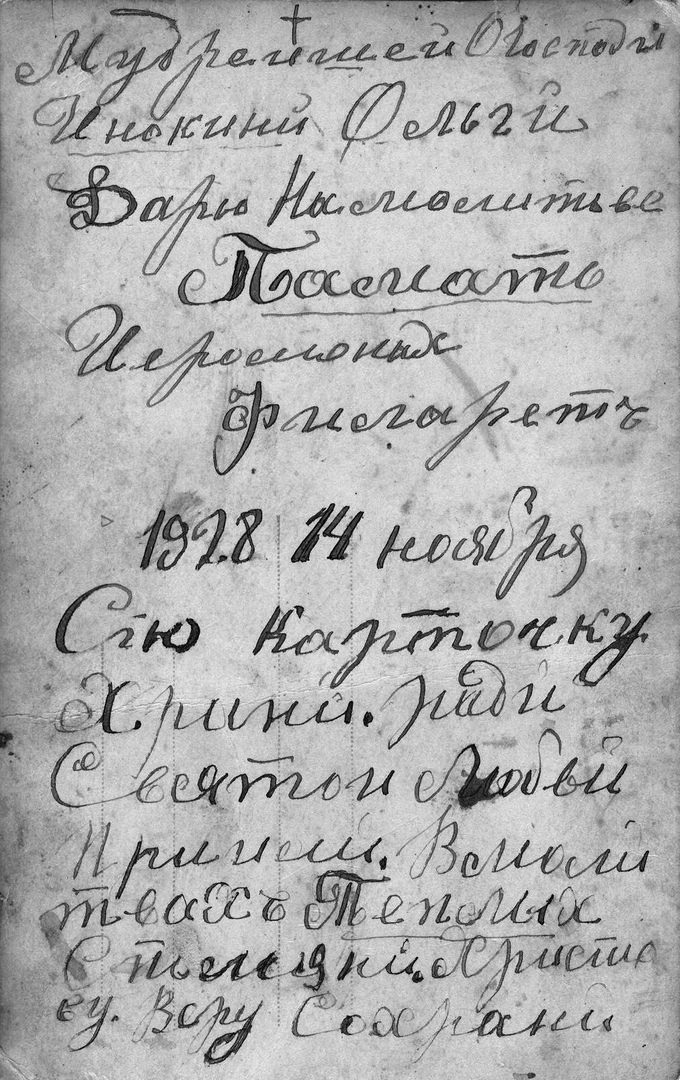 Мудрейшей О Господи
Инокини Ольги
Дарю На молитве
Память
Иеромоных
Филаретъ
1928 14 ноября
Сію карточку
Храни. ради
Святои Любви
Прими. В моли
твахъ Теплых
Христо
ву. Веру Сохрани